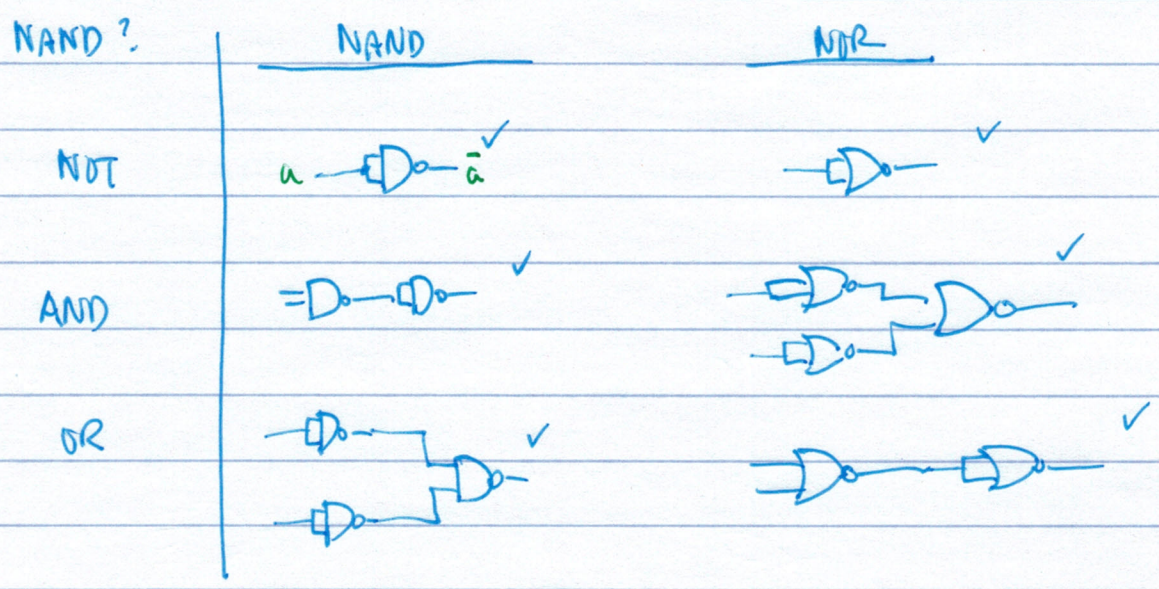 NAND? NAND NOR
NOT a ā
AND
OR